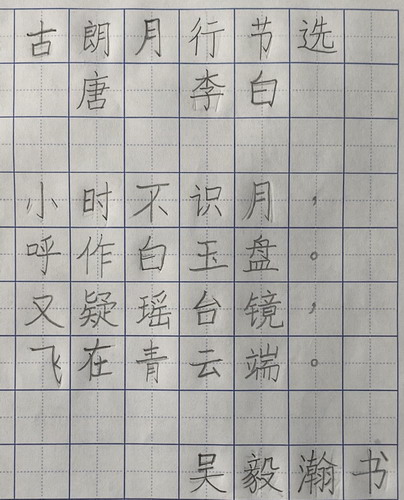 古朗月行节选
唐 李白
小时不识月，
呼作白玉盘。
又疑瑶台镜，
飞在青云端。
吴毅瀚书